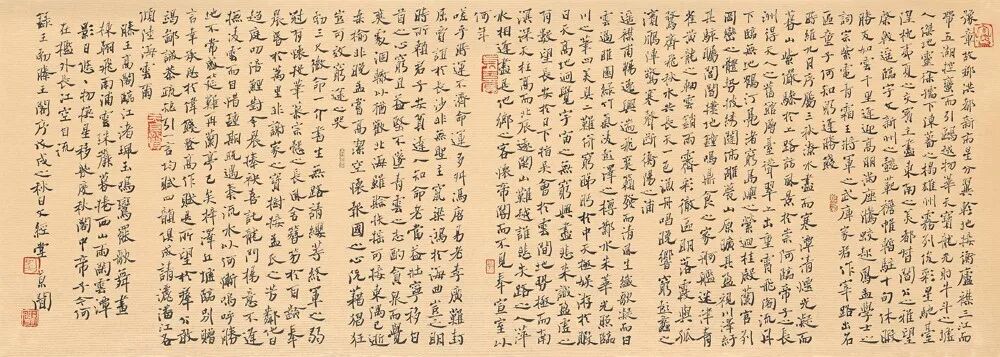 豫章故郡洪都新府星分翼軫地接衡廬襟三江而
帶五湖控蠻荊而引甌越物華天寶龍光射牛斗之墟
人傑地靈徐孺下陳蕃之榻雄州霧列俊彩星馳臺
隍枕夷夏之交賓主盡東南之美都督閻公之雅望
棨戟遙臨宇文新州之懿範襜帷暫駐十旬休暇
勝友如雲千里逢迎高朋滿座騰蛟起鳳孟學士之
詞宗紫電青霜王將軍之武庫家君作宰路出名
區童子何知躬逢勝餞
時維九月序屬三秋潦水盡而寒潭清煙光凝而
暮山紫儼驂騑於上路訪風景於崇阿臨帝子之長
洲得天人之舊館層巒聳翠上出重霄飛閣流丹
下臨無地鶴汀鳧渚窮島嶼之縈迴桂殿蘭宮即
岡巒之體勢披繡闥俯雕甍山原曠其盈視川澤紆
其駭矚閭閻撲地鐘鳴鼎食之家舸艦迷津青
雀黃龍之軸雲銷雨霽彩徹區明落霞與孤
鶩齊飛秋水共長天一色漁舟唱晚響窮彭蠡之
濱雁陣驚寒聲斷衡陽之浦
遙襟甫暢逸興遄飛爽籟發而清風生纖歌凝而白
雲遏睢園綠竹氣凌彭澤之樽鄴水朱華光照臨
川之筆四美具二難并窮睇眄於中天極娛游於暇
日天高地迥覺宇宙之無窮興盡悲來識盈虛之
有數望長安於日下指吳會於雲間地勢極而南
溟深天柱高而北辰遠關山難越誰悲失路之人萍
水相逢盡是他鄉之客懷帝閽而不見奉宣室以
何年
嗟乎時運不齊命運多舛馮唐易老李廣難封
屈賈誼於長沙非無聖主竄梁鴻於海曲豈乏明
時所賴君子安貧達人知命老當益壯寧移白
首之心窮且益堅不墜青雲之志酌貪泉而覺
爽處涸轍以猶歡北海雖賒扶搖可接東隅已逝
桑榆非晚孟嘗高潔空懷報國之心阮籍猖狂
豈可效窮途之哭
勃三尺微命一介書生無路請纓等終軍之弱
冠有懷投筆慕宗愨之長風舍簪笏於百齡奉
晨昏於萬里非謝家之寶樹接孟氏之芳鄰他日
趨庭叨陪鯉對今晨捧袂喜託龍門楊意不逢
撫凌雲而自惜鍾期既遇奏流水以何慚嗚呼勝
地不常盛筵難再蘭亭已矣梓澤丘墟臨別贈
言幸承恩於偉餞登高作賦是所望於群公敢
竭鄙誠恭疏短引一言均賦四韻俱成請灑潘江各
傾陸海雲爾
滕王高閣臨江渚佩玉鳴鸞罷歌舞畫
棟朝飛南浦雲珠簾暮捲西山雨閒雲潭
影日悠悠物換星移幾度秋閣中帝子今何
在檻外長江空自流
錄王勃滕王閣序戊戌之秋日文經堂